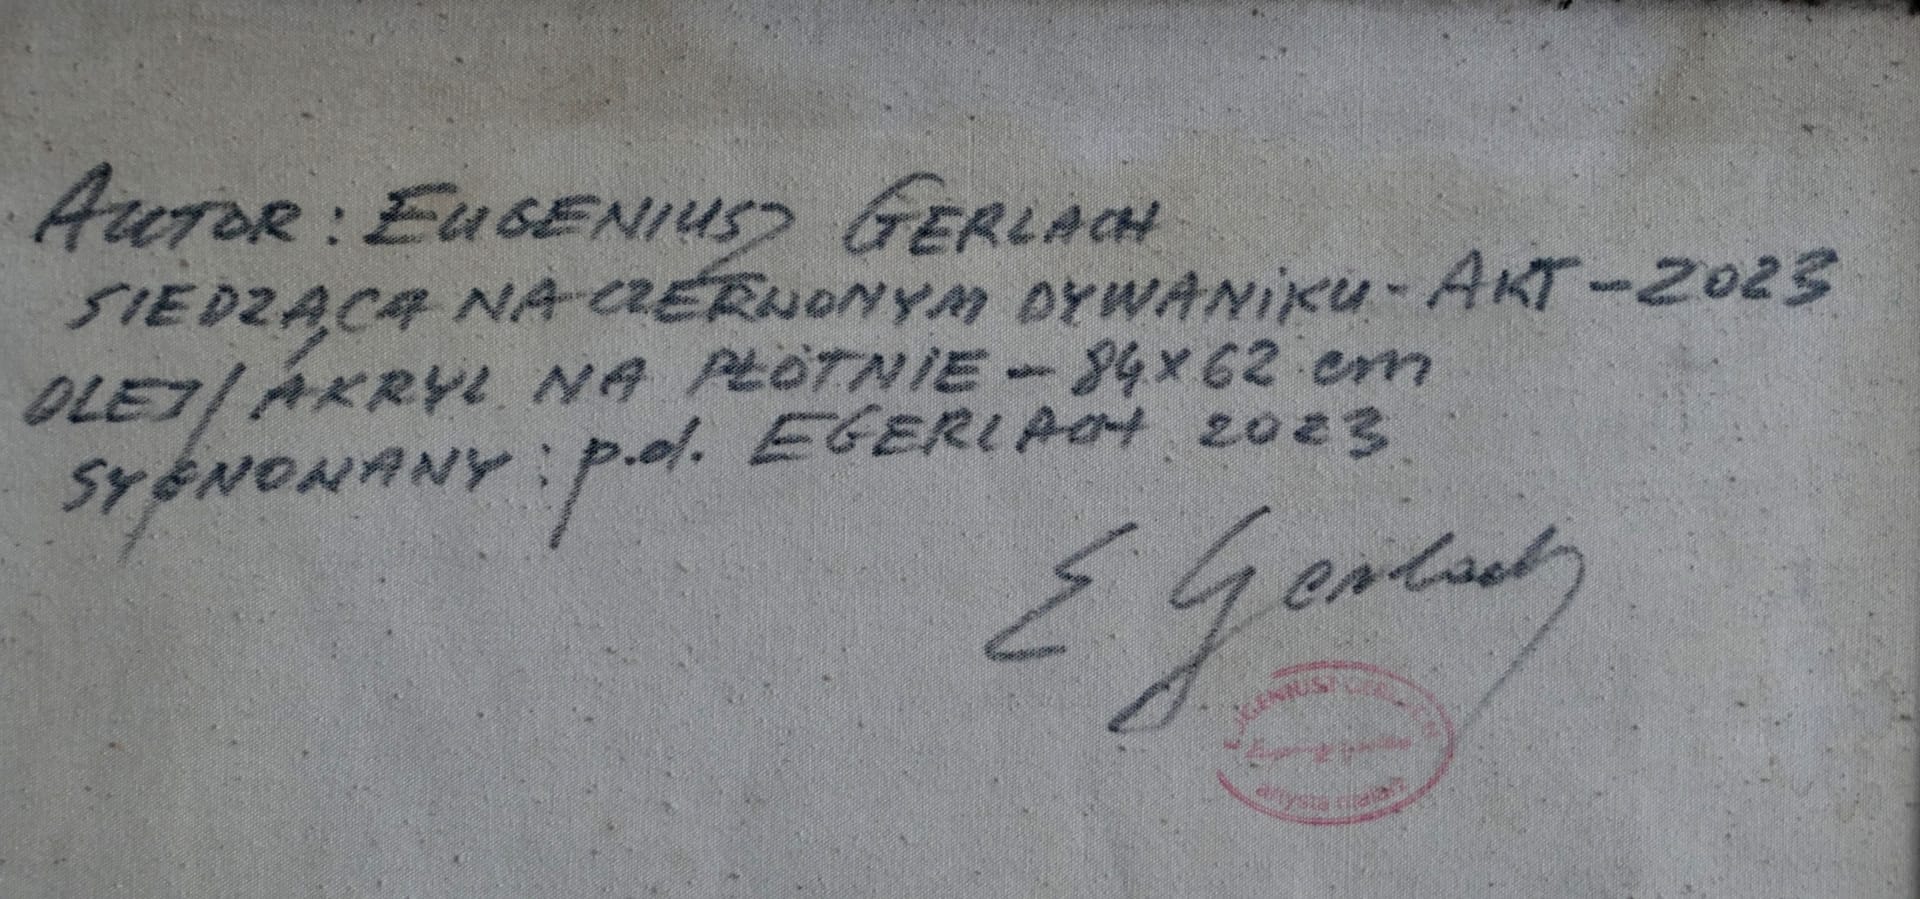 AUTOR: EUGENIUSZ GERLACH
SIEDZĄCA NA CZERWONYM DYWANIKU - AKT - 2023
OLEJ/AKRYL NA PŁÓTNIE - 84x62 cm
SYGNOWANY: p.d. EGERLACH 2023
E Gerlach
EUGENIUSZ GERLACH
artysta malarz